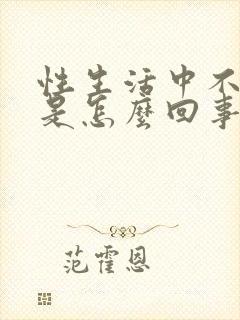 性生活中不
是怎麼回事
范霍恩